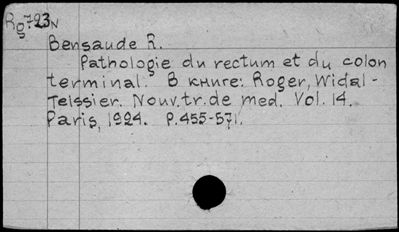 Rg723N
Bensaude R.
Pathologie du rectum et du colon
terminal. В книге: Roger, Widal-
Teissier. Nouv.tr.de med. Vol. 14.
Paris, 1924. P.455-571.